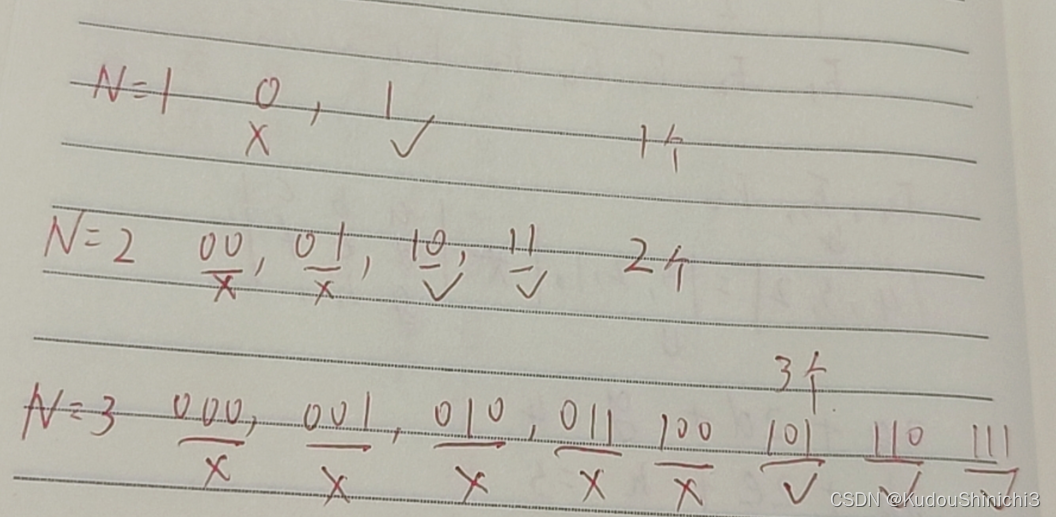 N=1 0, 1 1个
× ✓
N=2 00, 01, 10, 11 2个
× × ✓ ✓
3个
N=3 000, 001, 010, 011 100 101 110 111
× × × × × ✓ ✓ ✓
CSDN @KudouShinichi3